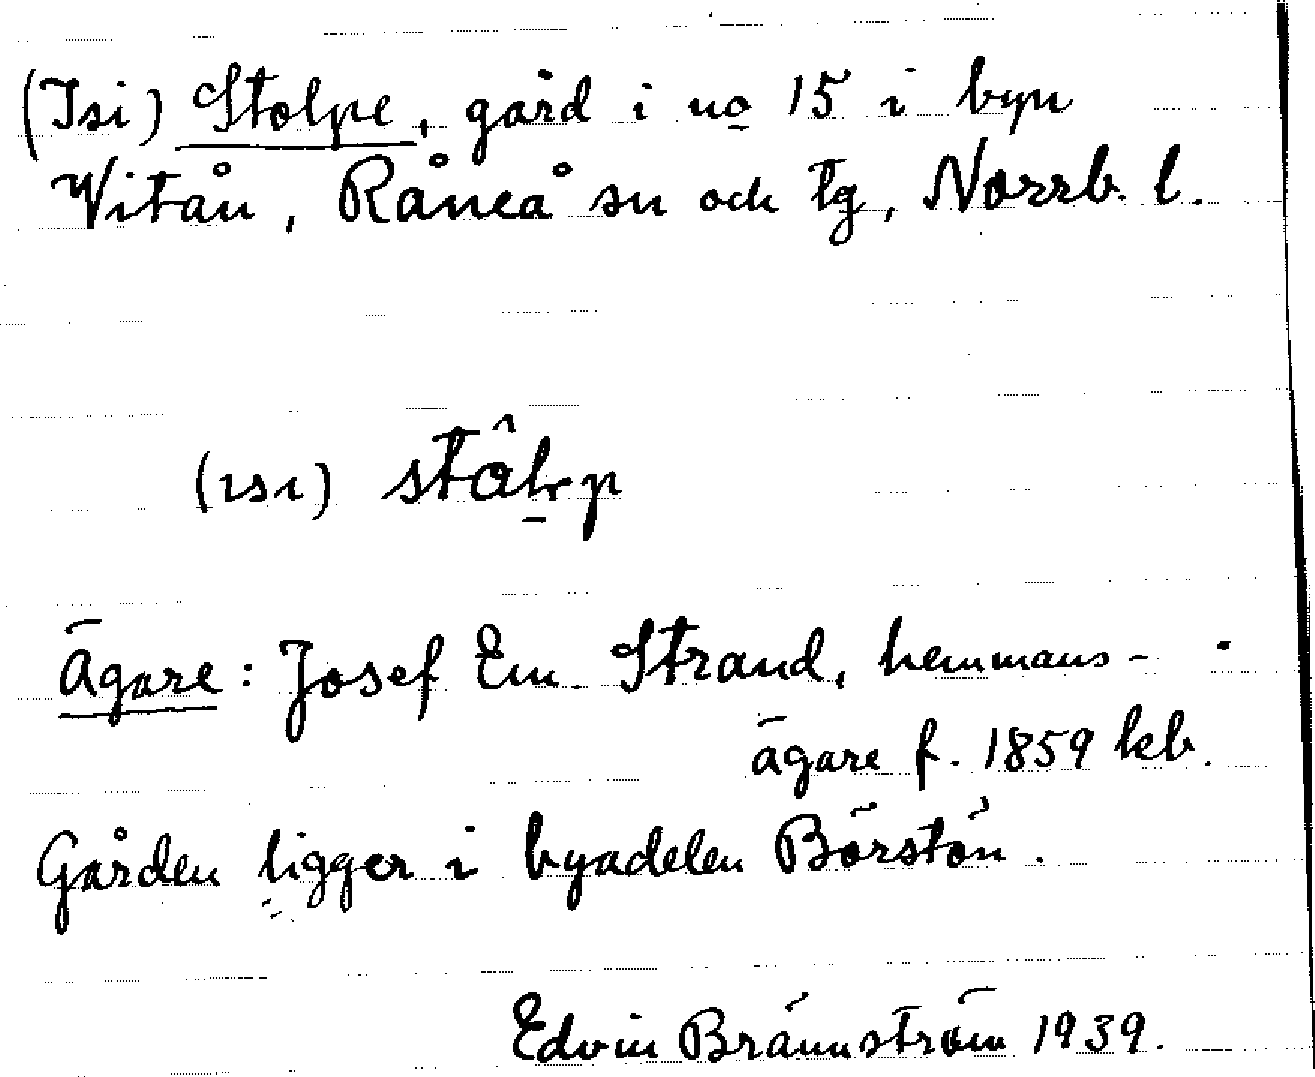 (Isi) Stolpe, gård i no 15 i byn
Vitån, Råneå sn och tg, Norrb. l.
(ısı)
Ägare: Josef Em. Strand, hemmans-
ägare f. 1859 kb.
Gården ligger i byadelen Börstön.
Edvin Brännström 1939.